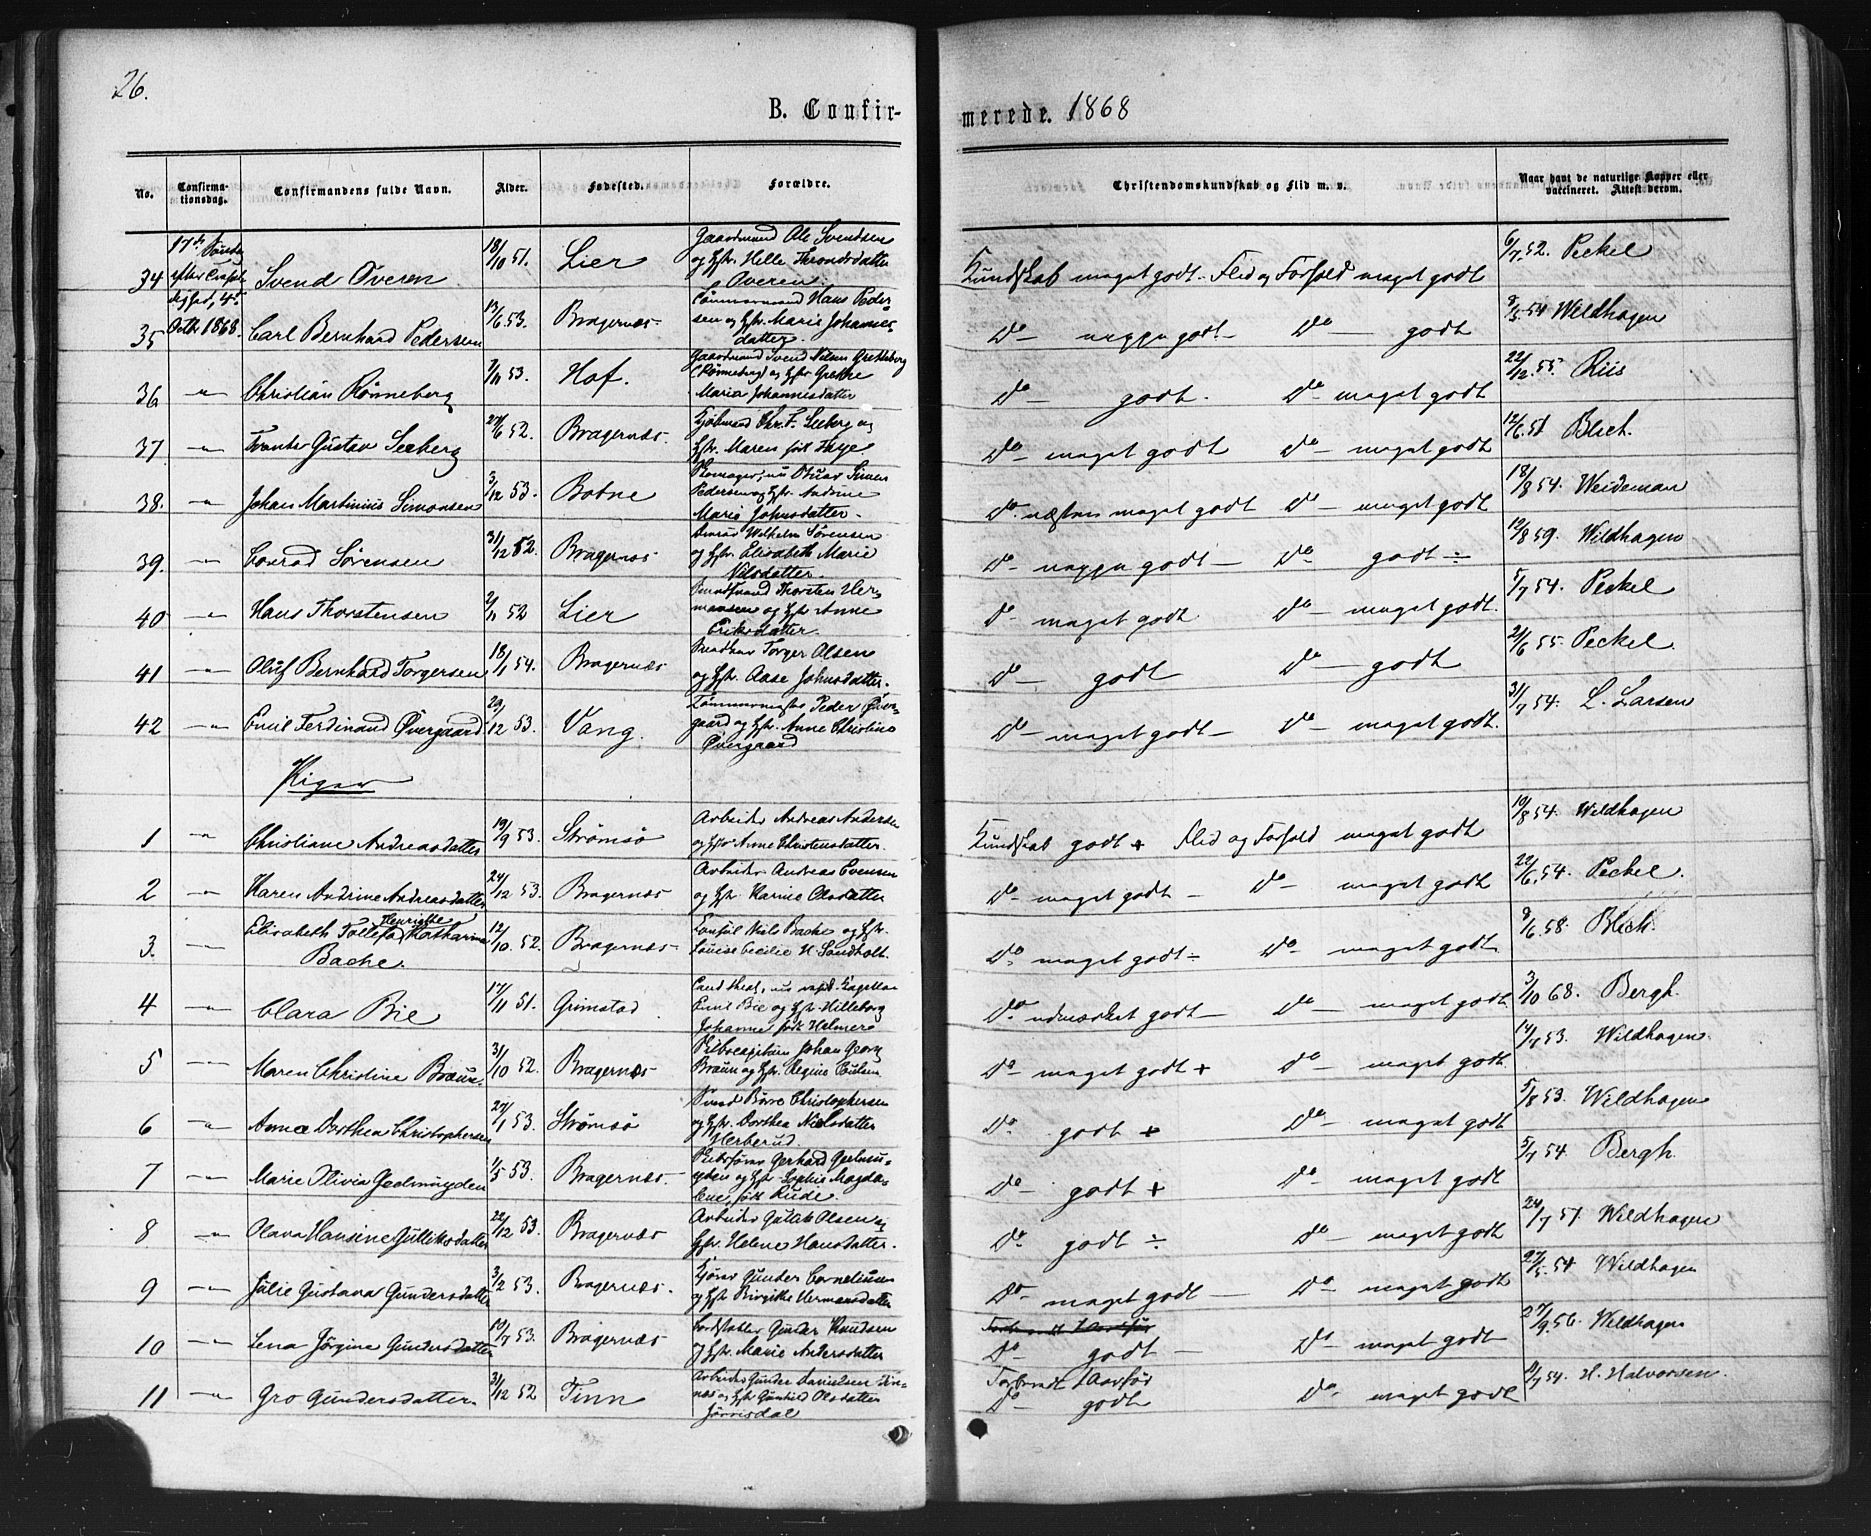 26.
B. Confirmerede. 1868
No. Confirmationsdag. Confirmandens fulde Navn. Alder. Fødested. Forældre. Christendomskundskab og Flid m. v. Naar havt de naturlige Kopper eller vaccineret. Attest derom.
34 17de Søndag efter 4de Octbr 1868. Svend Overen 18/10 51. Lier Gaardmand Ole Svendsen og Hstr. Helle Throndsdatter Overen. Kundskab meget godt. Flid og Forhold meget godt 6/7 52. Peckel
35 Carl Bernhard Pedersen 13/6 53. Bragernæs. Tømmermand Hans Pedersen og Hstr. Marie Johannesdatter. Do neppe godt. Do godt 9/5 54 Wildhagen
36 〃 Christian Rønneberg 7/11 53. Hof. Gaardmand Svend Nilsen (Rønneberg) og Hstr Grethe Maria Johannesdatter Do godt. Do meget godt 22/12 55. Riis
37 〃 Gustav Seeberg 27/6 52. Bragernæs. Kjøbmand Chr. F. Seeberg og Hstr. Maren født Thye Do meget godt Do meget godt 12/6 51 Blich.
38. 〃 Johan Martinius Simonsen 3/12 53. Botne nu Simen Pedersen og Hstr. Andrine Marie Johnsdatter. Do næsten meget godt Do meget godt 18/8 54. Weideman
39. 〃 Conrad Sørensen 31/12 52. Bragernæs Wilhelm Sørensen og Hstr. Elisabeth Marie Nilsdatter. Do neppe godt Do godt ÷ 12/8 59. Wildhagen
40 〃 Hans Thorstensen 2/11 52 Lier Thorsten Hermansen og Hstr Anne Eriksdatter. Do meget godt Do meget godt. 5/7 54. Peckel
41 〃 Oluf Bernhard Torgersen 18/1 54. Bragernæs Torger Olsen og Hstr. Aase Johnsdatter. Do godt Do godt 21/6 55 Peckel.
42 〃 Emil Ferdinand Øvergaard 29/12 53. Vang. Tømmermester Peder Øvergaard og Hstr. Anne Christine Øvergaard Do meget godt Do meget godt. 31/7 54. L. Larsen
Piger
1 〃 Christiane Andreasdatter 19/9 53. Strømsø Arbeider Andreas Andersen og Hstr Anne Christensdatter. Kundskab godt + Flid og Forhold meget godt 10/8 54. Wildhagen
2 〃 Karen Andrine Andreasdatter 24/12 53. Bragernæs Arbeider Andreas Evensen og Hstr. Karine Olsdatter Do meget godt Do meget godt 22/6 54. Peckel.
3. 〃 Elisabeth Tollefa Henriette Katharina Bache. 12/10 52. Bragernæs Consul Niels Bache og Hstr. Louise Cecilie H Sandholt. Do meget godt ÷ Do meget godt 9/6 58. Blich.
4 〃 Clara Bie 17/11 51. Grimstad Cand. theol., nu Emil Bie og Hstr Hilleborg Johanne født Helmers Do udmærket godt Do meget godt. 3/10 68. Bergh.
5 〃 Maren Christine Braun. 31/10 52. Bragernæs Skibscapitain Johan Georg Braun og Hstr. Regine Paulsen Do meget godt + Do meget godt. 14/7 53. Wildhagen.
6 〃 Anna Dorthea Christophersen 27/1 53. Strømsø Børre Christophersen og Hstr. Dorthea Nielsdatter Herberud. Do godt + Do meget godt 5/8 53. Wildhagen
7 〃 Marie Olivia Geelmuyden 1/5 53. Bragernæs. Skibsfører Gerhard Geelmuyden og Hstr. Sophie Magdalene født Rude. Do godt + Do meget godt 5/7 54 Bergh.
8 〃 Olava Hansine Gulliksdatter 22/12 53. Bragernæs Arbeider Gullik Olsen og Hstr. Helene Hansdatter. Do godt ÷ Do meget godt 24/7 57. Wildhagen
9 〃 Julie Gustava Gundersdatter 3/12 53. Bragernæs. Kjører Gunder Corneliusen og Hstr Birgitte Hermansdatter Do meget godt Do meget godt 27/5 54 Wildhagen
10 〃 Lena Jørgine Gundersdatter 10/7 53. Bragernæs Gunder Knudsen og Hstr. Marie Andersdatter Do godt Do meget godt 27/9 56. Wildhagen
11 〃 Gro Gundersdatter 31/12 52 Tinn Arbeider Gunder Danielsen og Hstr Gunhild Olsdatter Do godt Do meget godt 11/7 54. H. Halvorsen.